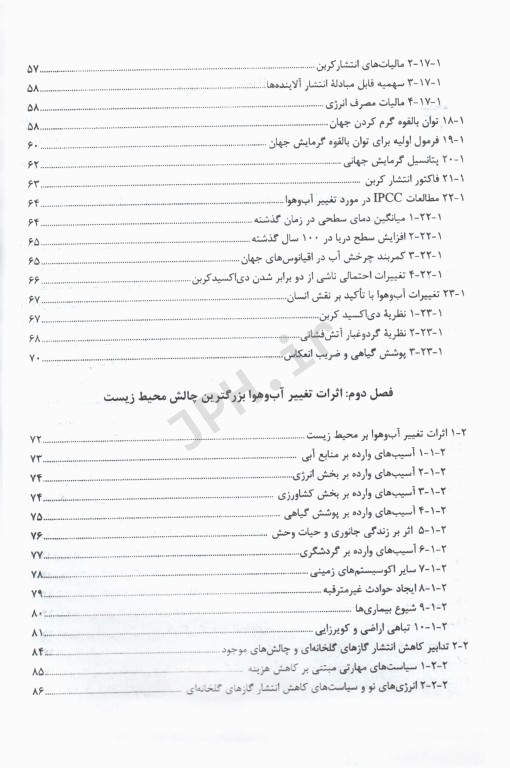 ۲-۱۷-۱ مالیات‌های انتشارکربن ۵۷
۳-۱۷-۱ سهمیه قابل مبادلهٔ انتشار آلاینده‌ها ۵۸
۴-۱۷-۱ مالیات مصرف انرژی ۵۸
۱۸-۱ توان بالقوه گرم کردن جهان ۵۸
۱۹-۱ فرمول اولیه برای توان بالقوه گرمایش جهان ۶۰
۲۰-۱ پتانسیل گرمایش جهانی ۶۲
۲۱-۱ فاکتور انتشار کربن ۶۳
۲۲-۱ مطالعات IPCC در مورد تغییر آب‌وهوا ۶۴
۱-۲۲-۱ میانگین دمای سطحی در زمان گذشته ۶۴
۲-۲۲-۱ افزایش سطح دریا در ۱۰۰ سال گذشته ۶۵
۳-۲۲-۱ کمربند چرخش آب در اقیانوس‌های جهان ۶۵
۴-۲۲-۱ تغییرات احتمالی ناشی از دو برابر شدن دی‌اکسیدکربن ۶۶
۲۳-۱ تغییرات آب‌وهوا با تأکید بر نقش انسان ۶۷
۱-۲۳-۱ نظریهٔ دی‌اکسید کربن ۶۷
۲-۲۳-۱ نظریهٔ گردوغبار آتش‌فشانی ۶۸
۳-۲۳-۱ پوشش گیاهی و ضریب انعکاس ۷۰
فصل دوم: اثرات تغییر آب‌وهوا بزرگترین چالش محیط زیست
۱-۲ اثرات تغییر آب‌وهوا بر محیط زیست ۷۲
۱-۱-۲ آسیب‌های وارده بر منابع آبی ۷۳
۲-۱-۲ آسیب‌های وارده بر بخش انرژی ۷۴
۳-۱-۲ آسیب‌های وارده بر بخش کشاورزی ۷۴
۴-۱-۲ آسیب‌های وارده بر پوشش گیاهی ۷۵
۵-۱-۲ اثر بر زندگی جانوری و حیات وحش ۷۶
۶-۱-۲ آسیب‌های وارده بر گردشگری ۷۷
۷-۱-۲ سایر اکوسیستم‌های زمینی ۷۸
۸-۱-۲ ایجاد حوادث غیرمترقبه ۷۹
۹-۱-۲ شیوع بیماری‌ها ۸۰
۱۰-۱-۲ تباهی اراضی و کویرزایی ۸۱
۲-۲ تدابیر کاهش انتشار گازهای گلخانه‌ای و چالش‌های موجود ۸۴
۱-۲-۲ سیاست‌های مهارتی مبتنی بر کاهش هزینه ۸۵
۲-۲-۲ انرژی‌های نو و سیاست‌های کاهش انتشار گازهای گلخانه‌ای ۸۶
JPH.ir